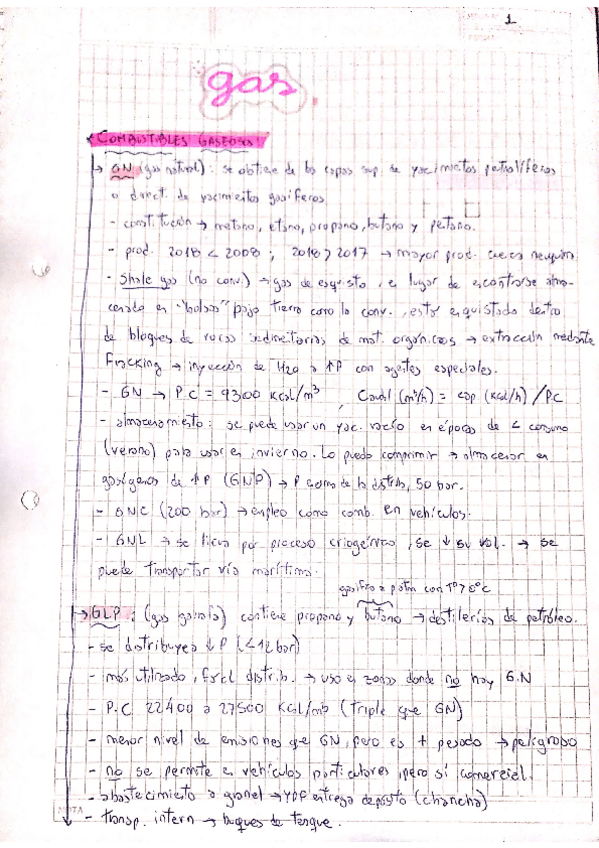 1
gas.
COMBUSTIBLES GASEOSOS:
→ GN (gas natural): se obtiene de las capas sup. de yacimientos petrolíferos
o direct. de yacimientos gasíferos
- constitución → metano, etano, propano, butano y pentano.
- prod. 2018 < 2008 ; 2018 > 2017 → mayor prod. cuenca neuquina
- Shale gas (no conv.) → gas de esquisto, en lugar de encontrarse alma-
cenado en "bolsas" bajo tierra como lo conv., está enquistado dentro
de bloques de rocas sedimentarias de mat. orgánicos → extracción mediante
Fracking → inyección de H2O a ↑P con agentes especiales.
- GN → P.C = 9300 Kcal/m³ , Caudal (m³/h) = cap (Kcal/h) / PC
- almacenamiento: se puede usar un yac. vacío en épocas de < consumo
(verano) para usar en invierno. Lo puedo comprimir → almacenar en
gasógenos de ↑P (GNP) → P cerca de la distrib, 50 bar.
- GNC (200 bar) → empleo como comb. en vehículos.
- GNL → se licua por proceso criogénico, se ↓ su vol. → se
puede transportar vía marítima.
gasifica a patm con Tº > 0ºC
→ GLP: (gas garrafa) contiene propano y butano → destilerías de petróleo.
- se distribuye a ↓P (<12 bar)
- más utilizado, fácil distrib. → uso en zonas donde no hay G.N
- P.C 22400 a 27500 Kcal/m3 (triple que GN)
- menor nivel de emisiones que GN, pero es + pesado → peligroso
- no se permite en vehículos particulares, pero sí comercial.
- abastecimiento a granel → YPF entrega depósito (chancha)
- transp. intern → buques de tanque.